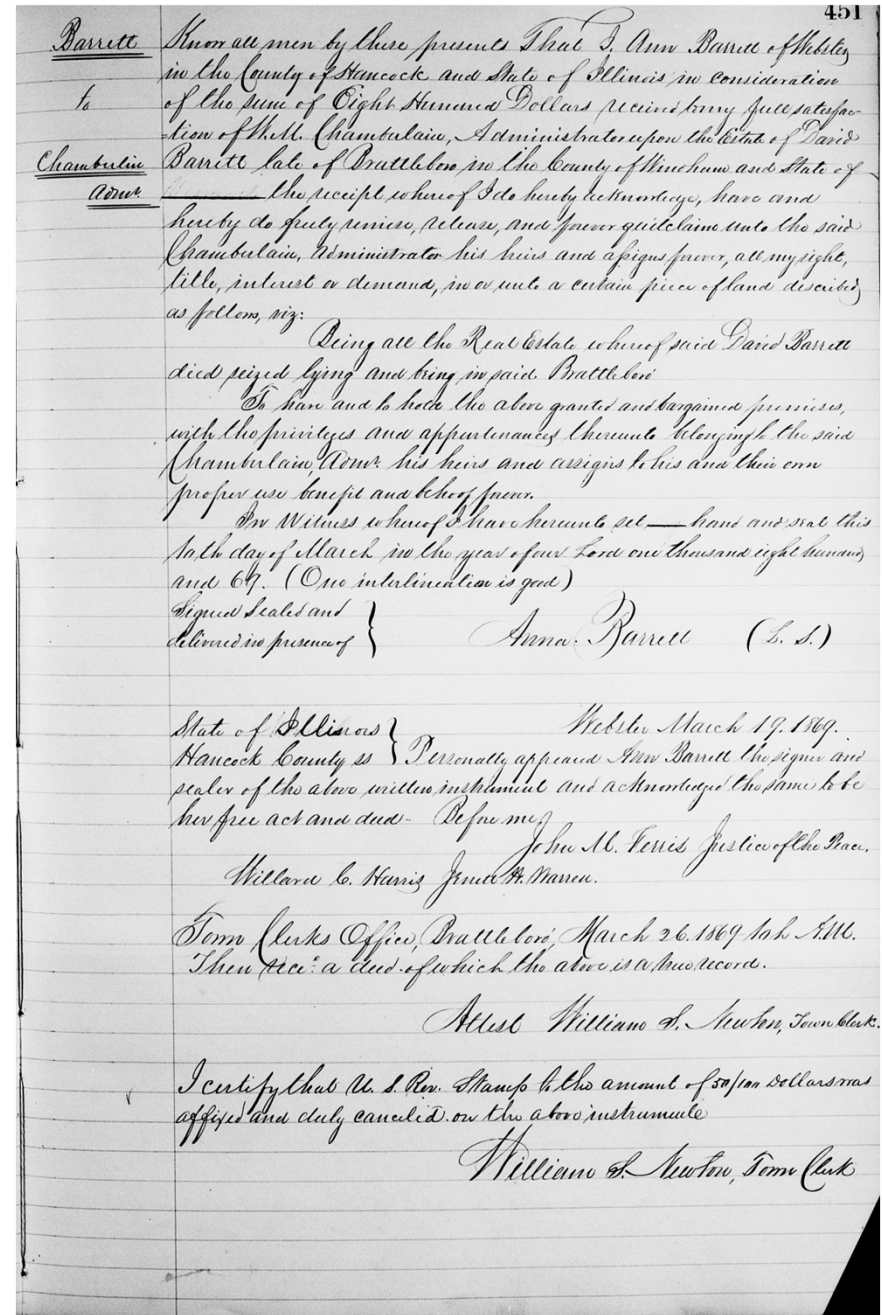 451
Barrett
to
Chamberlin
Admr.
Know all men by these presents That I, Ann Barrett of Webster
in the County of Hancock and State of Illinois in consideration
of the sum of Eight Hundred Dollars received to my full satisfac-
=tion of W. M. Chamberlain, Administrator upon the Estate of David
Barrett late of Brattleboro in the County of Windham and State of
the receipt whereof I do hereby acknowledge, have and
hereby do freely remise, release, and forever quitclaim unto the said
Chamberlain, Administrator his heirs and assigns forever, all my right,
title, interest or demand, in or unto a certain piece of land described
as follows, viz:
Being all the Real Estate whereof said David Barrett
died seized lying and being in said Brattleboro
To have and to hold the above granted and bargained premises,
with the privileges and appurtenances thereunto belonging to the said
Chamberlain, Admr. his heirs and assigns to his and their own
proper use benefit and behoof forever.
In Witness whereof I have hereunto set — hand and seal this
day of March in the year of our Lord one thousand eight hundred
and 69. (One interlineation is good)
Signed Sealed and
delivered in presence of
Anna Barrett (L. S.)
State of Illinois
Webster March 19. 1869.
Hancock County ss } Personally appeared Ann Barrett the signer and
sealer of the above written instrument and acknowledged the same to be
her free act and deed - Before me,
John M. Ferris Justice of the Peace.
Willard C. Harris H. Warren.
Town Clerks Office, Brattleboro, March 26. 1869 A.M.
Then recd. a deed of which the above is a true record.
Attest William S. Newton, Town Clerk.
I certify that U. S. Rev. Stamp to the amount of 50/100 Dollars was
affixed and duly canceled on the above instrument
William S. Newton, Town Clerk